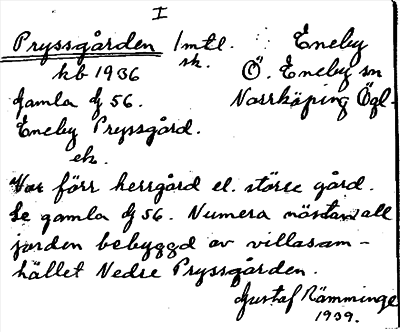 I
Pryssgården 1 mtl. Eneby
sk.
kb 1936 Ö. Eneby sn
Gamla Ej 56. Norrköping Ögl.
Eneby Pryssgård.
ek.
Var förr herrgård el. större gård.
Se gamla Ej 56. Numera nästan all
jorden bebyggd av villasam-
hället Nedre Pryssgården.
Gustaf Rämminge
1939.